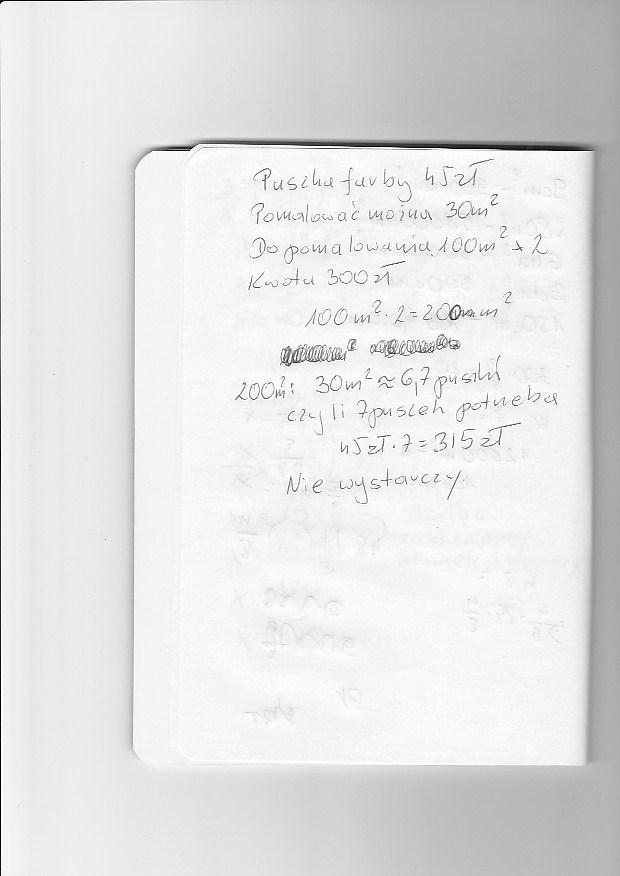 Puszka farby 45zł
Pomalować można 30m²
Do pomalowania 100m² x 2
Kwota 300zł
100m² · 2 = 200 m²
200m² : 30m² ≈ 6,7 puszki
czyli 7 puszek potrzeba
45zł · 7 = 315 zł
Nie wystarczy.